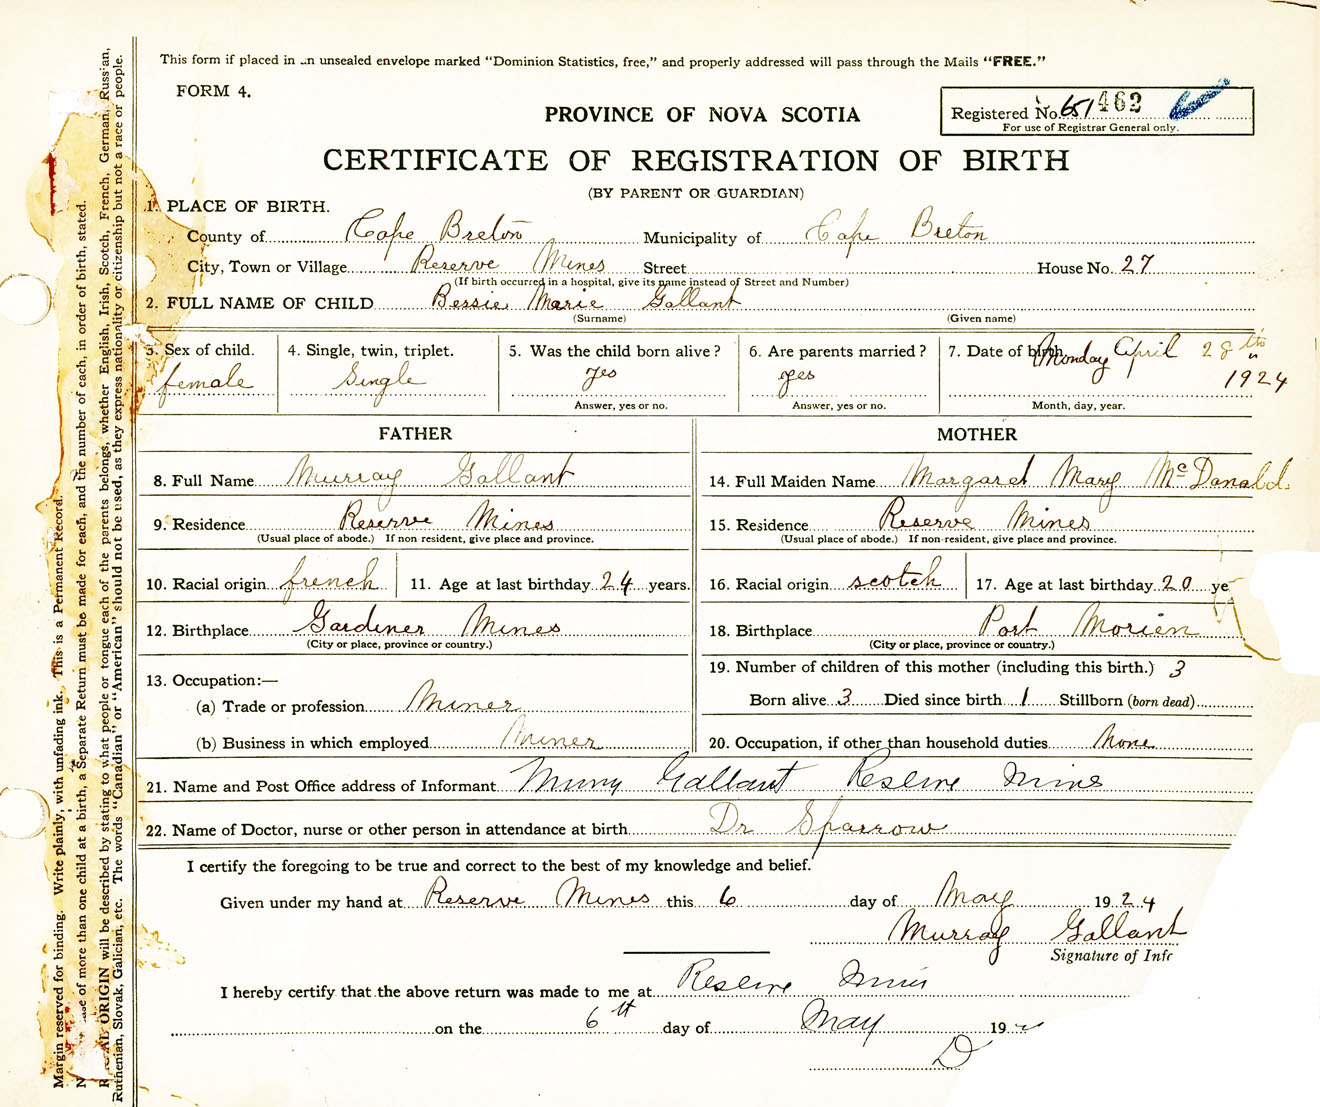 This form if placed in an unsealed envelope marked "Dominion Statistics, free," and properly addressed will pass through the Mails "FREE."
FORM 4.
PROVINCE OF NOVA SCOTIA
Registered No. 651 462
For use of Registrar General only.
CERTIFICATE OF REGISTRATION OF BIRTH
(BY PARENT OR GUARDIAN)
1. PLACE OF BIRTH.
County of Cape Breton Municipality of Cape Breton
City, Town or Village Reserve Mines Street House No. 27
(If birth occurred in a hospital, give its name instead of Street and Number)
2. FULL NAME OF CHILD Bessie Marie Gallant
(Surname) (Given name)
3. Sex of child. female
4. Single, twin, triplet. Single
5. Was the child born alive? yes
Answer, yes or no.
6. Are parents married? yes
Answer, yes or no.
7. Date of birth Monday April 28th
1924
Month, day, year.
FATHER
8. Full Name Murray Gallant
9. Residence Reserve Mines
(Usual place of abode.) If non resident, give place and province.
10. Racial origin french 11. Age at last birthday 24 years.
12. Birthplace Gardiner Mines
(City or place, province or country.)
13. Occupation:—
(a) Trade or profession Miner
(b) Business in which employed Miner
MOTHER
14. Full Maiden Name Margaret Mary McDonald.
15. Residence Reserve Mines
(Usual place of abode.) If non-resident, give place and province.
16. Racial origin scotch 17. Age at last birthday 20 ye
18. Birthplace Port Morien
(City or place, province or country.)
19. Number of children of this mother (including this birth.) 3
Born alive 3 Died since birth 1 Stillborn (born dead)
20. Occupation, if other than household duties None
21. Name and Post Office address of Informant Murray Gallant Reserve Mines
22. Name of Doctor, nurse or other person in attendance at birth Dr Sparrow
I certify the foregoing to be true and correct to the best of my knowledge and belief.
Given under my hand at Reserve Mines this 6 day of May 1924
Murray Gallant
Signature of Info
I hereby certify that the above return was made to me at Reserve Mines
on the 6th day of May 19
D
Margin reserved for binding. Write plainly, with unfading ink. This is a Permanent Record.
case of more than one child at a birth, a Separate Return must be made for each, and the number of each, in order of birth, stated.
ORIGIN will be described by stating to what people or tongue each of the parents belongs, whether English, Irish, Scotch, French, German, Russian,
Ruthenian, Slovak, Galician, etc. The words "Canadian" or "American" should not be used, as they express nationality or citizenship but not a race or people.